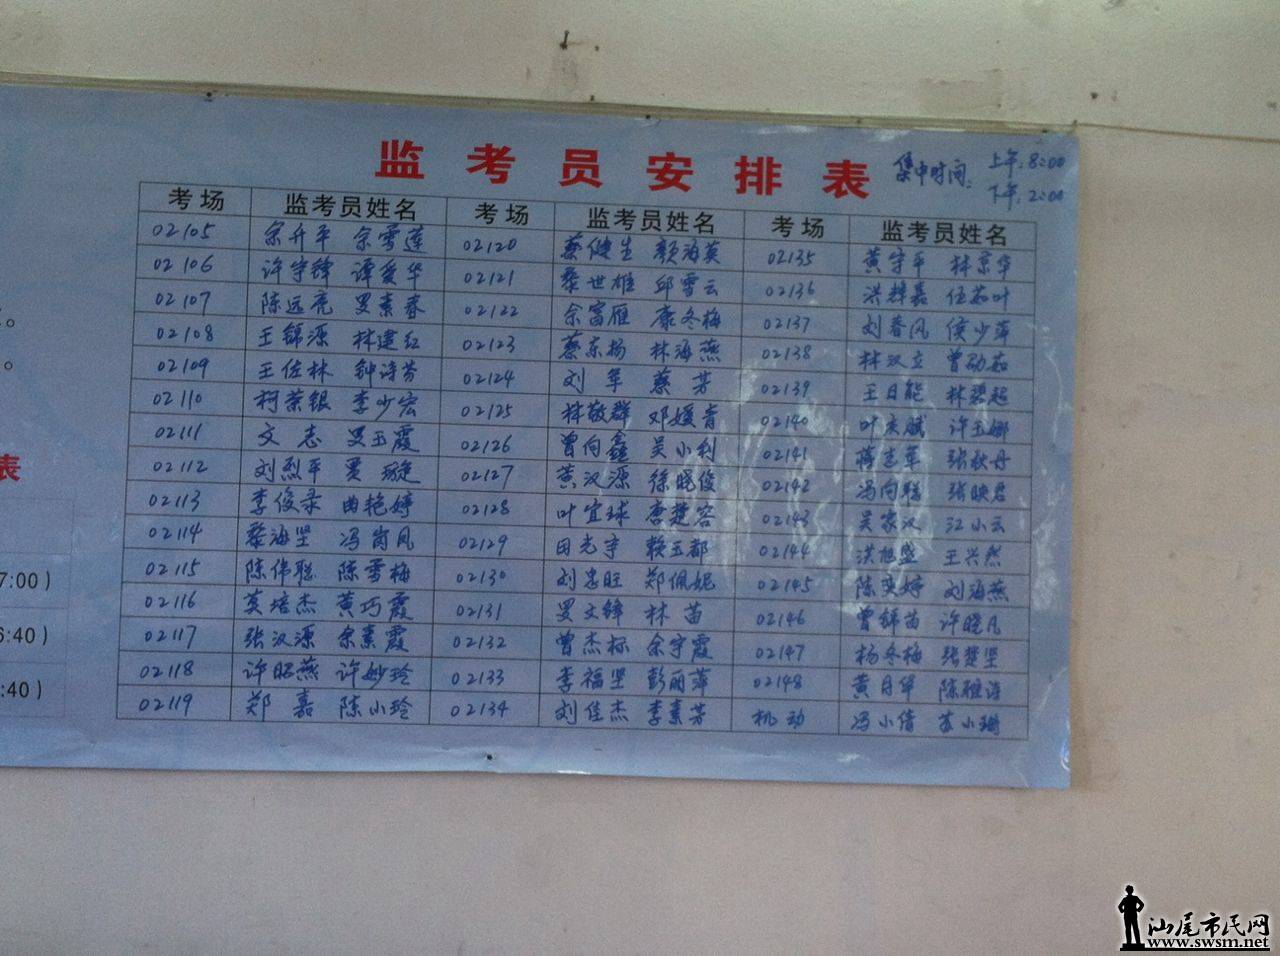 监考员安排表 集中时间: 上午:8:00
下午:2:00
考场 监考员姓名 考场 监考员姓名 考场 监考员姓名
02105 余升平 余雪莲 02120 蔡健生 颜海英 02135 黄宇平 林景华
02106 许宇锋 谭爱华 02121 黎世雄 邱雪云 02136 洪群嘉 伍茹叶
02107 陈远亮 罗素春 02122 余富雁 康冬梅 02137 刘春风 侯少萍
02108 王锦源 林建红 02123 蔡东扬 林海燕 02138 林汉立 曾劭茹
02109 王佐林 钟诗芬 02124 刘军 蔡芳 02139 王日能 林碧超
02110 柯荣银 李少宏 02125 林敬群 邓媛青 02140 叶夫斌 许玉娜
02111 文志 罗玉霞 02126 曾向鑫 吴小利 02141 蒋志军 张秋丹
02112 刘烈平 贾璇 02127 黄汉源 徐晓俊 02142 冯向聪 张映君
02113 李俊录 曲艳婷 02128 叶宜球 唐楚容 02143 吴家汉 江小云
02114 黎海坚 冯岗凤 02129 田光宇 赖玉都 02144 洪旭盛 王兴然
02115 陈伟聪 陈雪梅 02130 刘忠旺 郑佩妮 02145 陈奕婷 刘海燕
02116 莫培杰 黄巧霞 02131 罗文锋 林苗 02146 曾锦苗 许晓凡
02117 张汉源 余素霞 02132 曾杰标 余宇霞 02147 杨冬梅 张楚坚
02118 许昭燕 许妙玲 02133 李福坚 彭丽萍 02148 黄月华 陈雅诗
02119 郑嘉 陈小玲 02134 刘佳杰 李素芳 机动 冯小倩 苏小珊
表
7:00)
6:40)
:40)
汕尾市民网
www.swsm.net